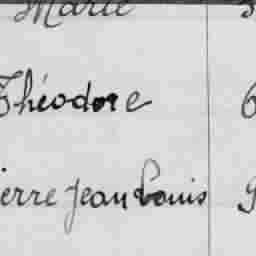 Marie
Théodore 6
ierre Jean Louis 9